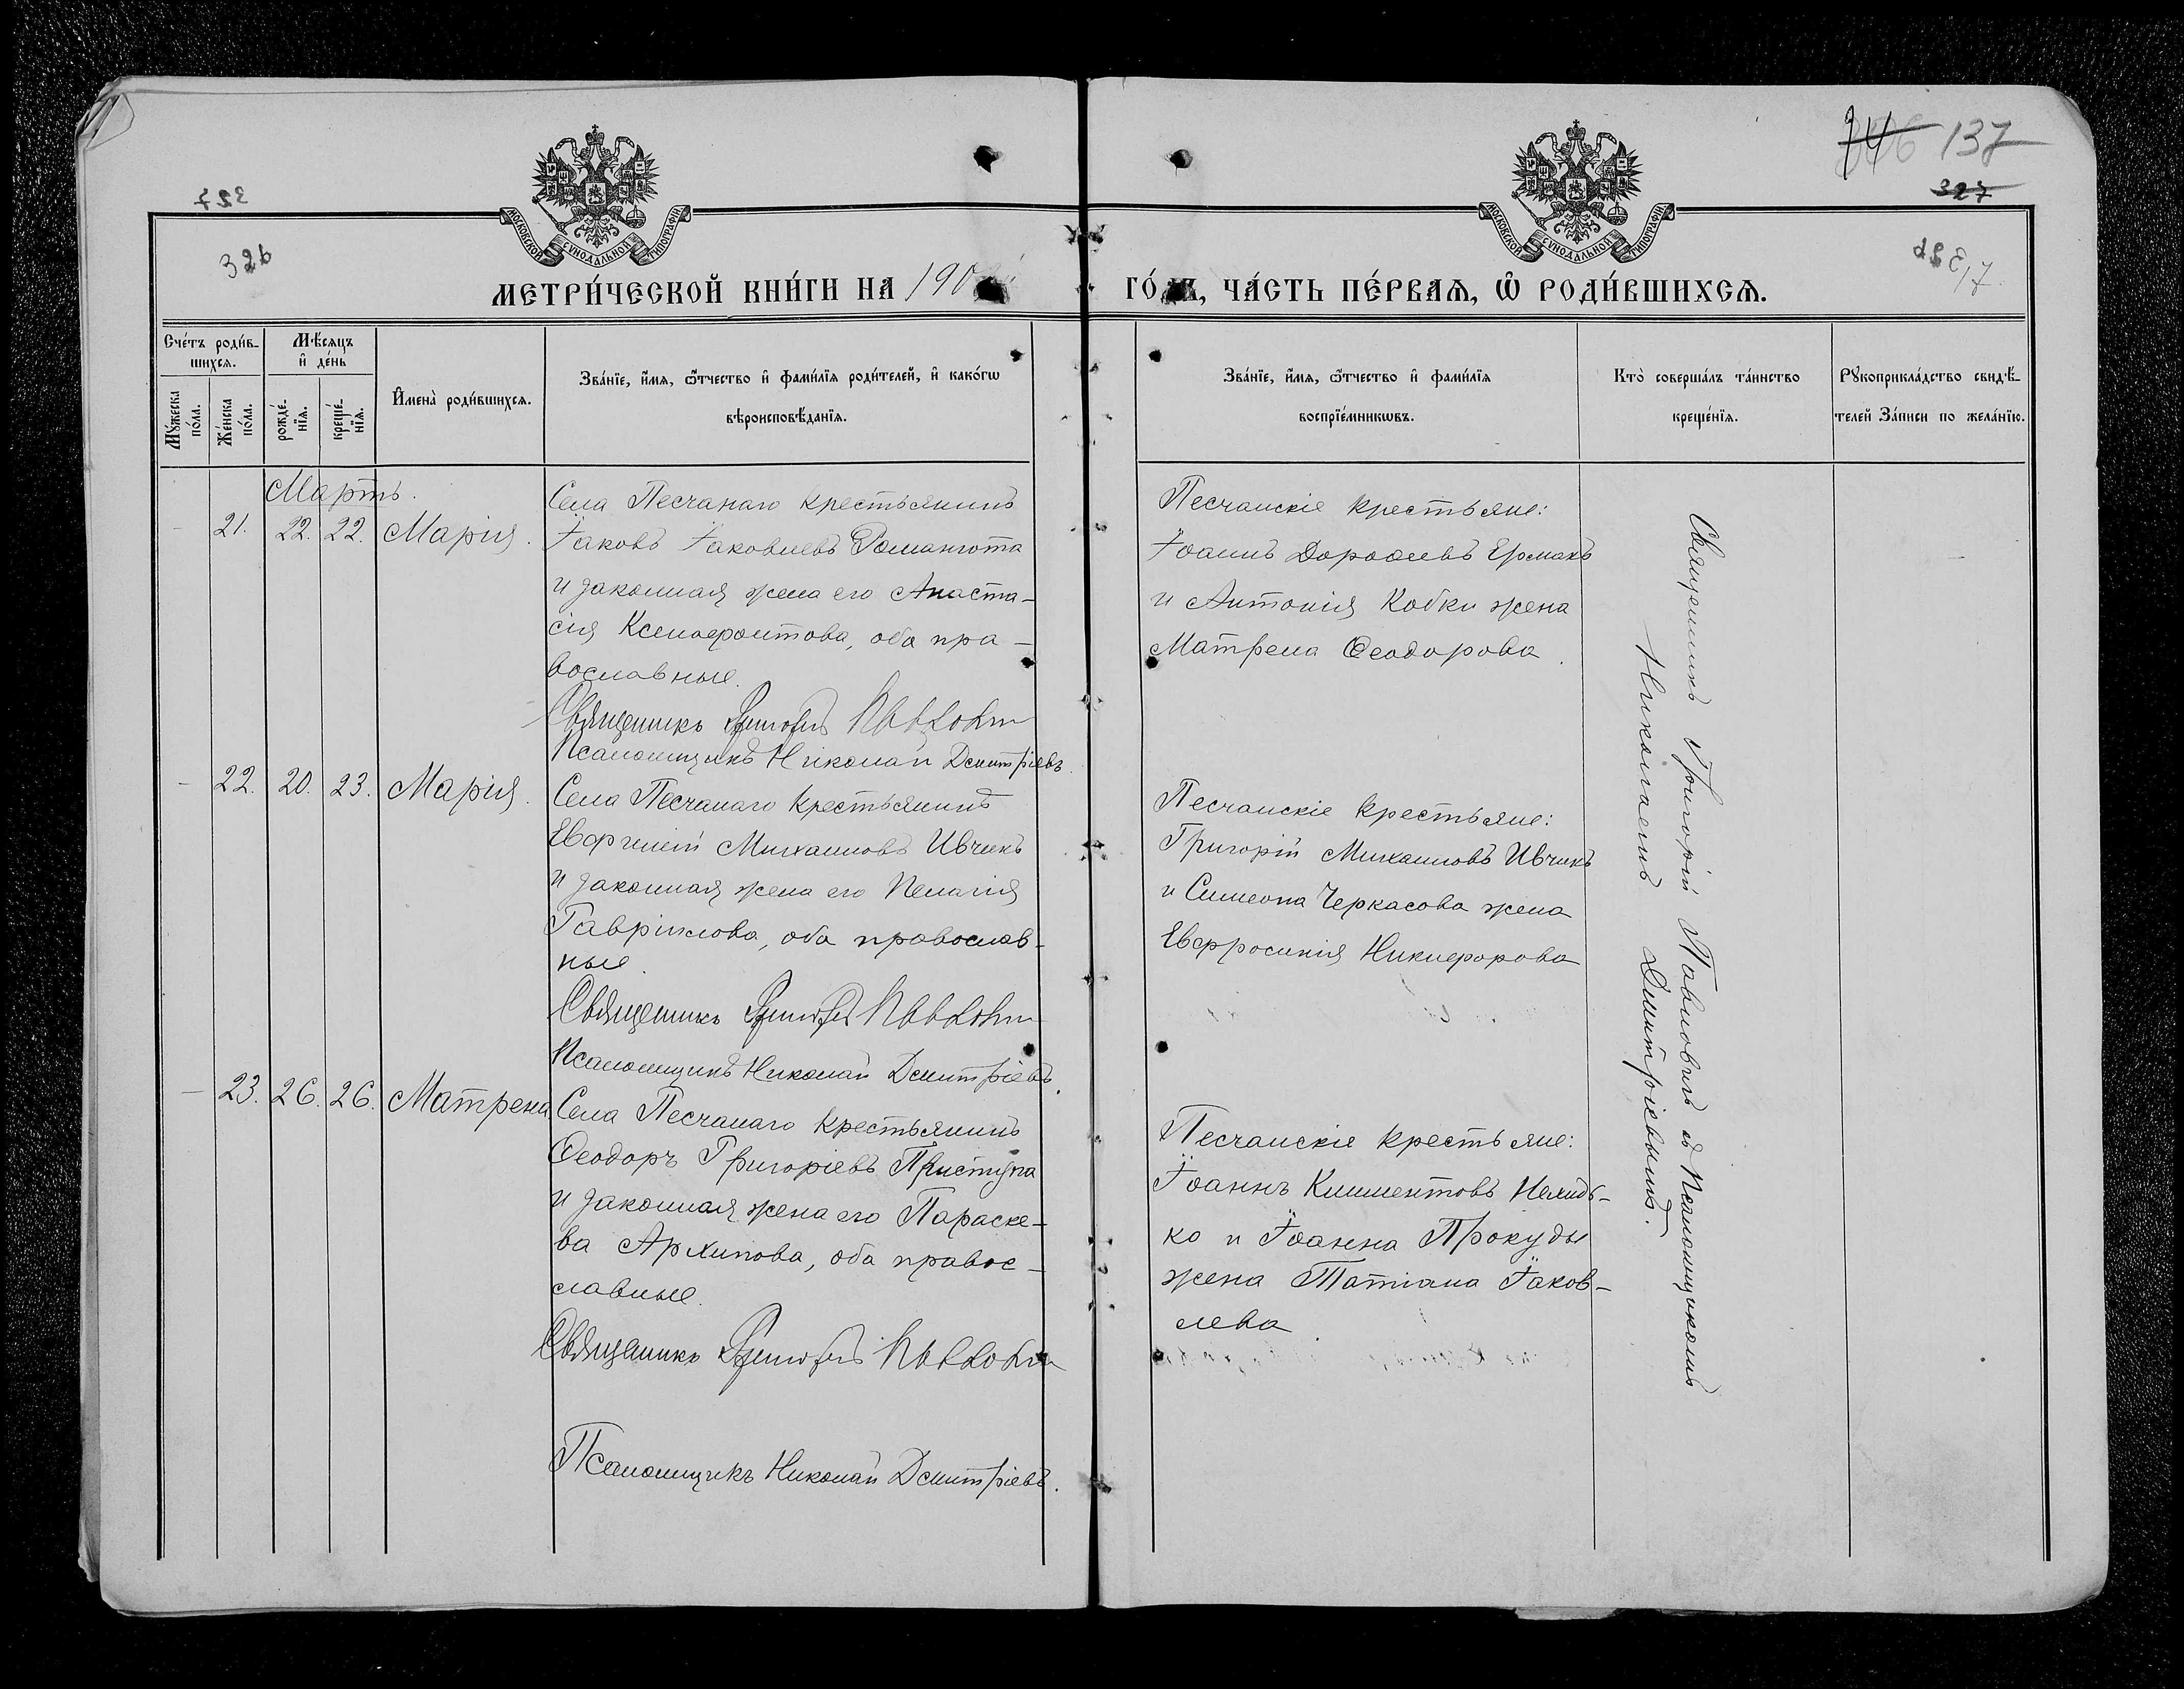 74 137
327
327
326
17
МОСКОВСКОЙ СѴНОДАЛЬНОЙ ТИПОГРАФІИ
МОСКОВСКОЙ СѴНОДАЛЬНОЙ ТИПОГРАФІИ
МЕТРИ́ЧЕСКОЙ КНИ́ГИ НА 190
ГО́ДЪ, ЧА́СТЬ ПЕ́РВАѦ, Ѡ҆ РОДИ́ВШИХСѦ.
Сче́тъ роди́в-
шихсѧ.
Мѣ́сѧцъ
и҆ де́нь
Мꙋ́жеска
по́ла.
Же́нска
по́ла.
рожде́-
нїѧ.
креще́-
нїѧ.
И҆мена̀ роди́вшихсѧ.
Зва́нїе, и҆́мѧ, ѻ҆́тчество и҆ фами́лїѧ роди́телей, и҆ како́гѡ
вѣроисповѣ́данїѧ.
Зва́нїе, и҆́мѧ, ѻ҆́тчество и҆ фами́лїѧ
воспрїе́мникѡвъ.
Кто̀ соверша́лъ та́инство
креще́нїѧ.
Рꙋкоприкла́дство свидѣ́-
телей За́писи по жела́нїю.
Мартъ.
- 21. 22. 22. Марія.
Села Песчанаго крестьянинъ
Іаковъ Іаковлевъ Романюта
и законная жена его Анаста-
сія Ксенофонтова, оба пра-
вославные.
Священникъ Григорій Павловичъ
Псаломщикъ Николай Дмитріевъ.
Песчанскіе крестьяне:
Іоаннъ Дороѳеевъ Ермакъ
и Антонія Кобки жена
Матрена Ѳеодорова.
- 22. 20. 23. Марія.
Села Песчанаго крестьянинъ
Евфимій Михаиловъ Ивчикъ
и законная жена его Пелагія
Гавріилова, оба православ-
ные.
Священникъ Григорій Павловичъ
Псаломщикъ Николай Дмитріевъ.
Песчанскіе крестьяне:
Григорій Михаиловъ Ивчикъ
и Симеона Черкасова жена
Евфросинія Никифорова
- 23. 26. 26. Матрена
Села Песчанаго крестьянинъ
Ѳеодоръ Григоріевъ Приступа
и законная жена его Параске-
ва Архипова, оба правос-
лавные.
Священникъ Григорій Павловичъ
Псаломщикъ Николай Дмитріевъ.
Песчанскіе крестьяне:
Іоаннъ Климентовъ
ко и Іоанна Прокуды
жена Татіана Іаков-
лева.
Священникъ Григорій Павловичъ съ Псаломщикомъ
Николаемъ Дмитріевымъ.